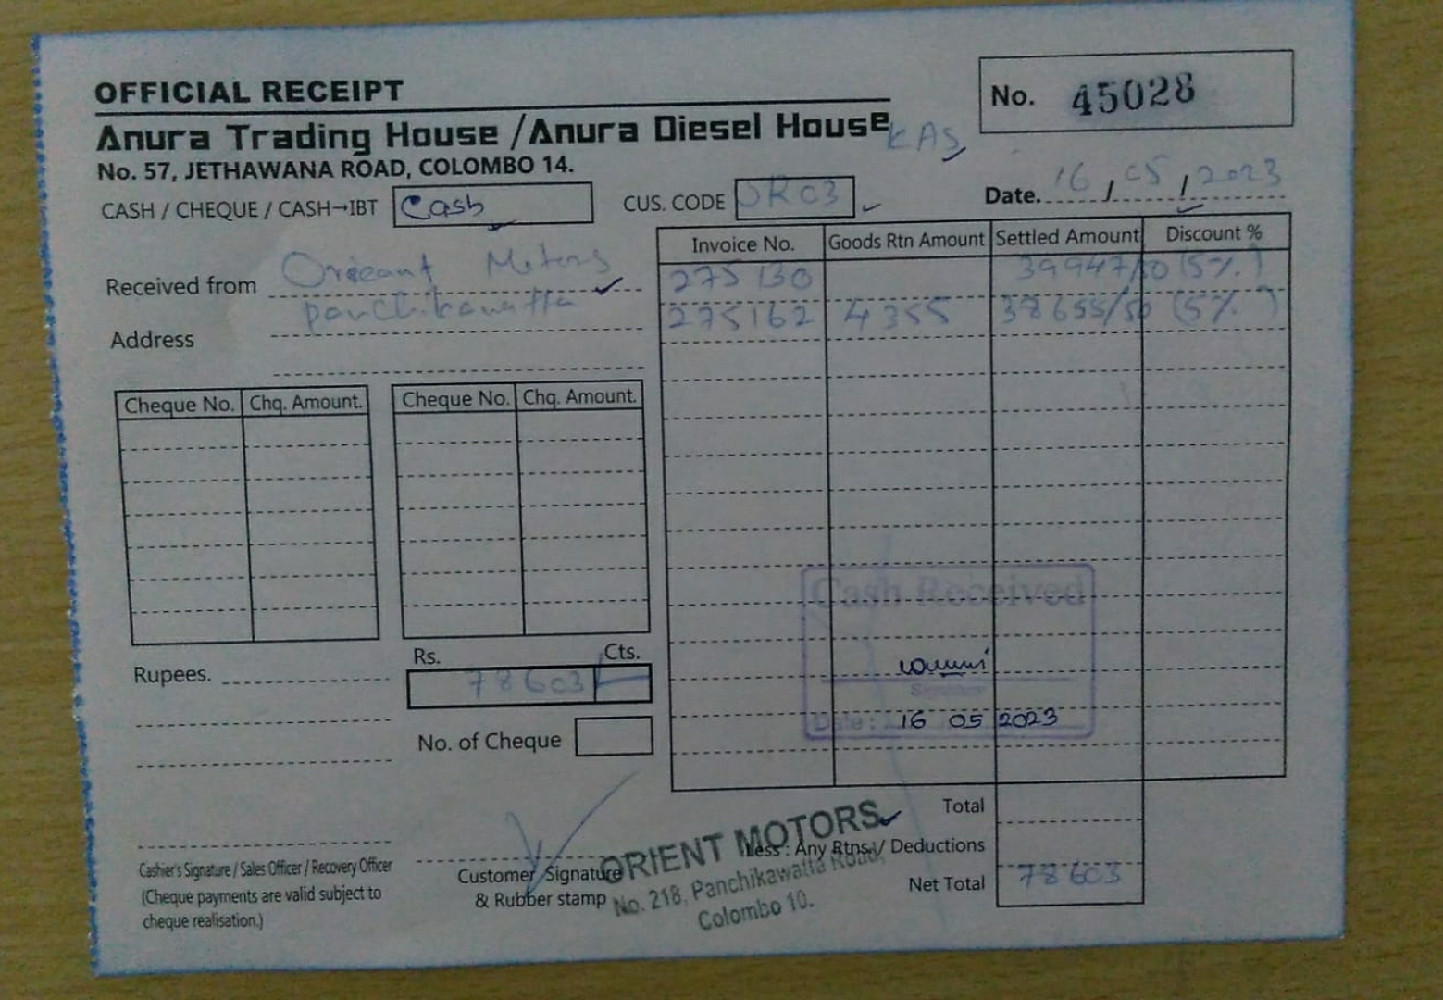 OFFICIAL RECEIPT
No. 45028
Anura Trading House / Anura Diesel House
KAS
No. 57, JETHAWANA ROAD, COLOMBO 14.
CASH / CHEQUE / CASH→IBT Cash
CUS. CODE OR03
Date. 16 / 05 / 2023
Invoice No. Goods Rtn Amount Settled Amount Discount %
275130 39947/50 (5%)
275162 4355 38655/50 (5%)
Received from Orieant Motors
panchikawatta
Address
Cheque No. Chq. Amount. Cheque No. Chq. Amount.
Cash Received
Signature
Date: 16 05 2023
Rupees.
Rs. Cts.
78603
No. of Cheque
Total
Less : Any Rtns / Deductions
Net Total 78603
Cashier's Signature / Sales Officer / Recovery Officer
(Cheque payments are valid subject to
cheque realisation.)
Customer Signature
& Rubber stamp
ORIENT MOTORS
No. 218, Panchikawatta Road,
Colombo 10.